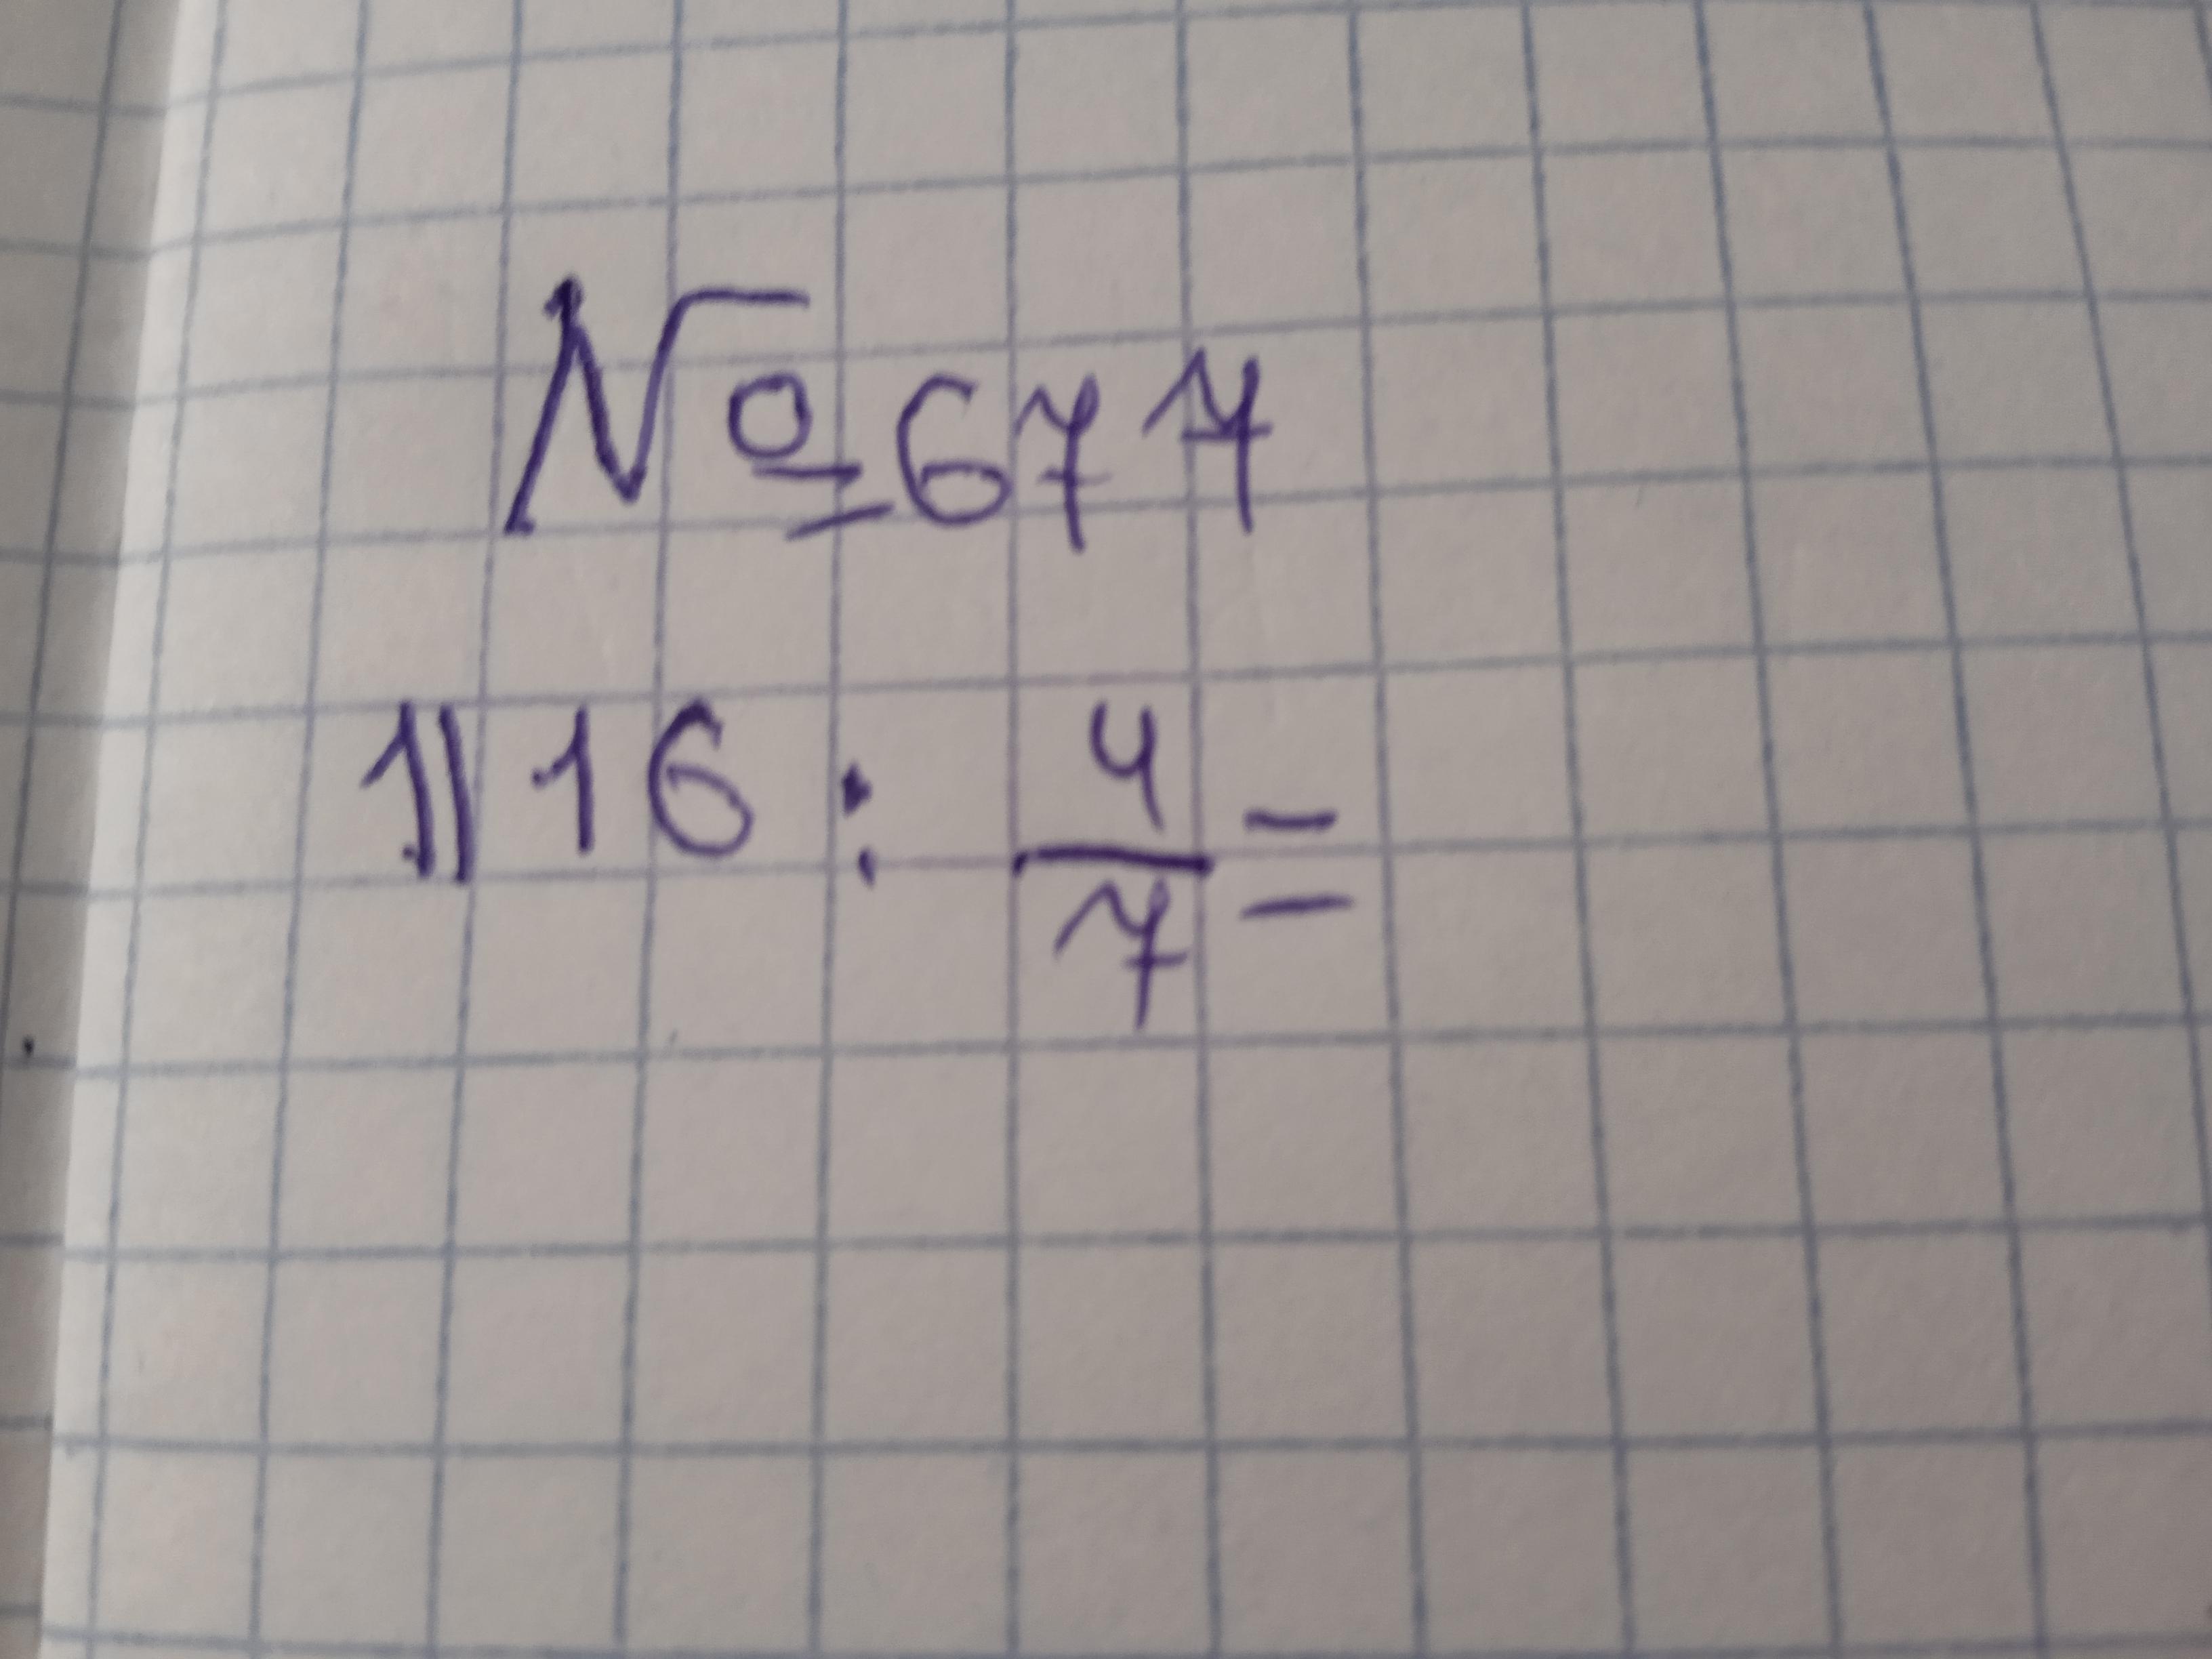 №677
1) 16 : 4/7 =